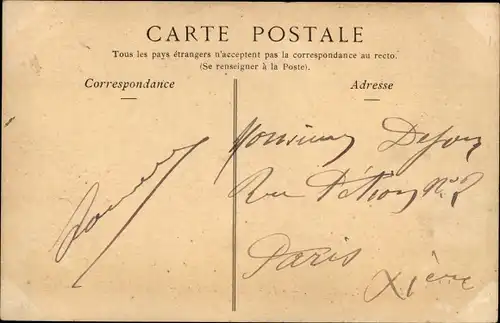 CARTE POSTALE
Tous les pays étrangers n'acceptent pas la correspondance au recto.
(Se renseigner à la Poste).
Correspondance
Adresse
Monsieur
Rue
Paris
Xième